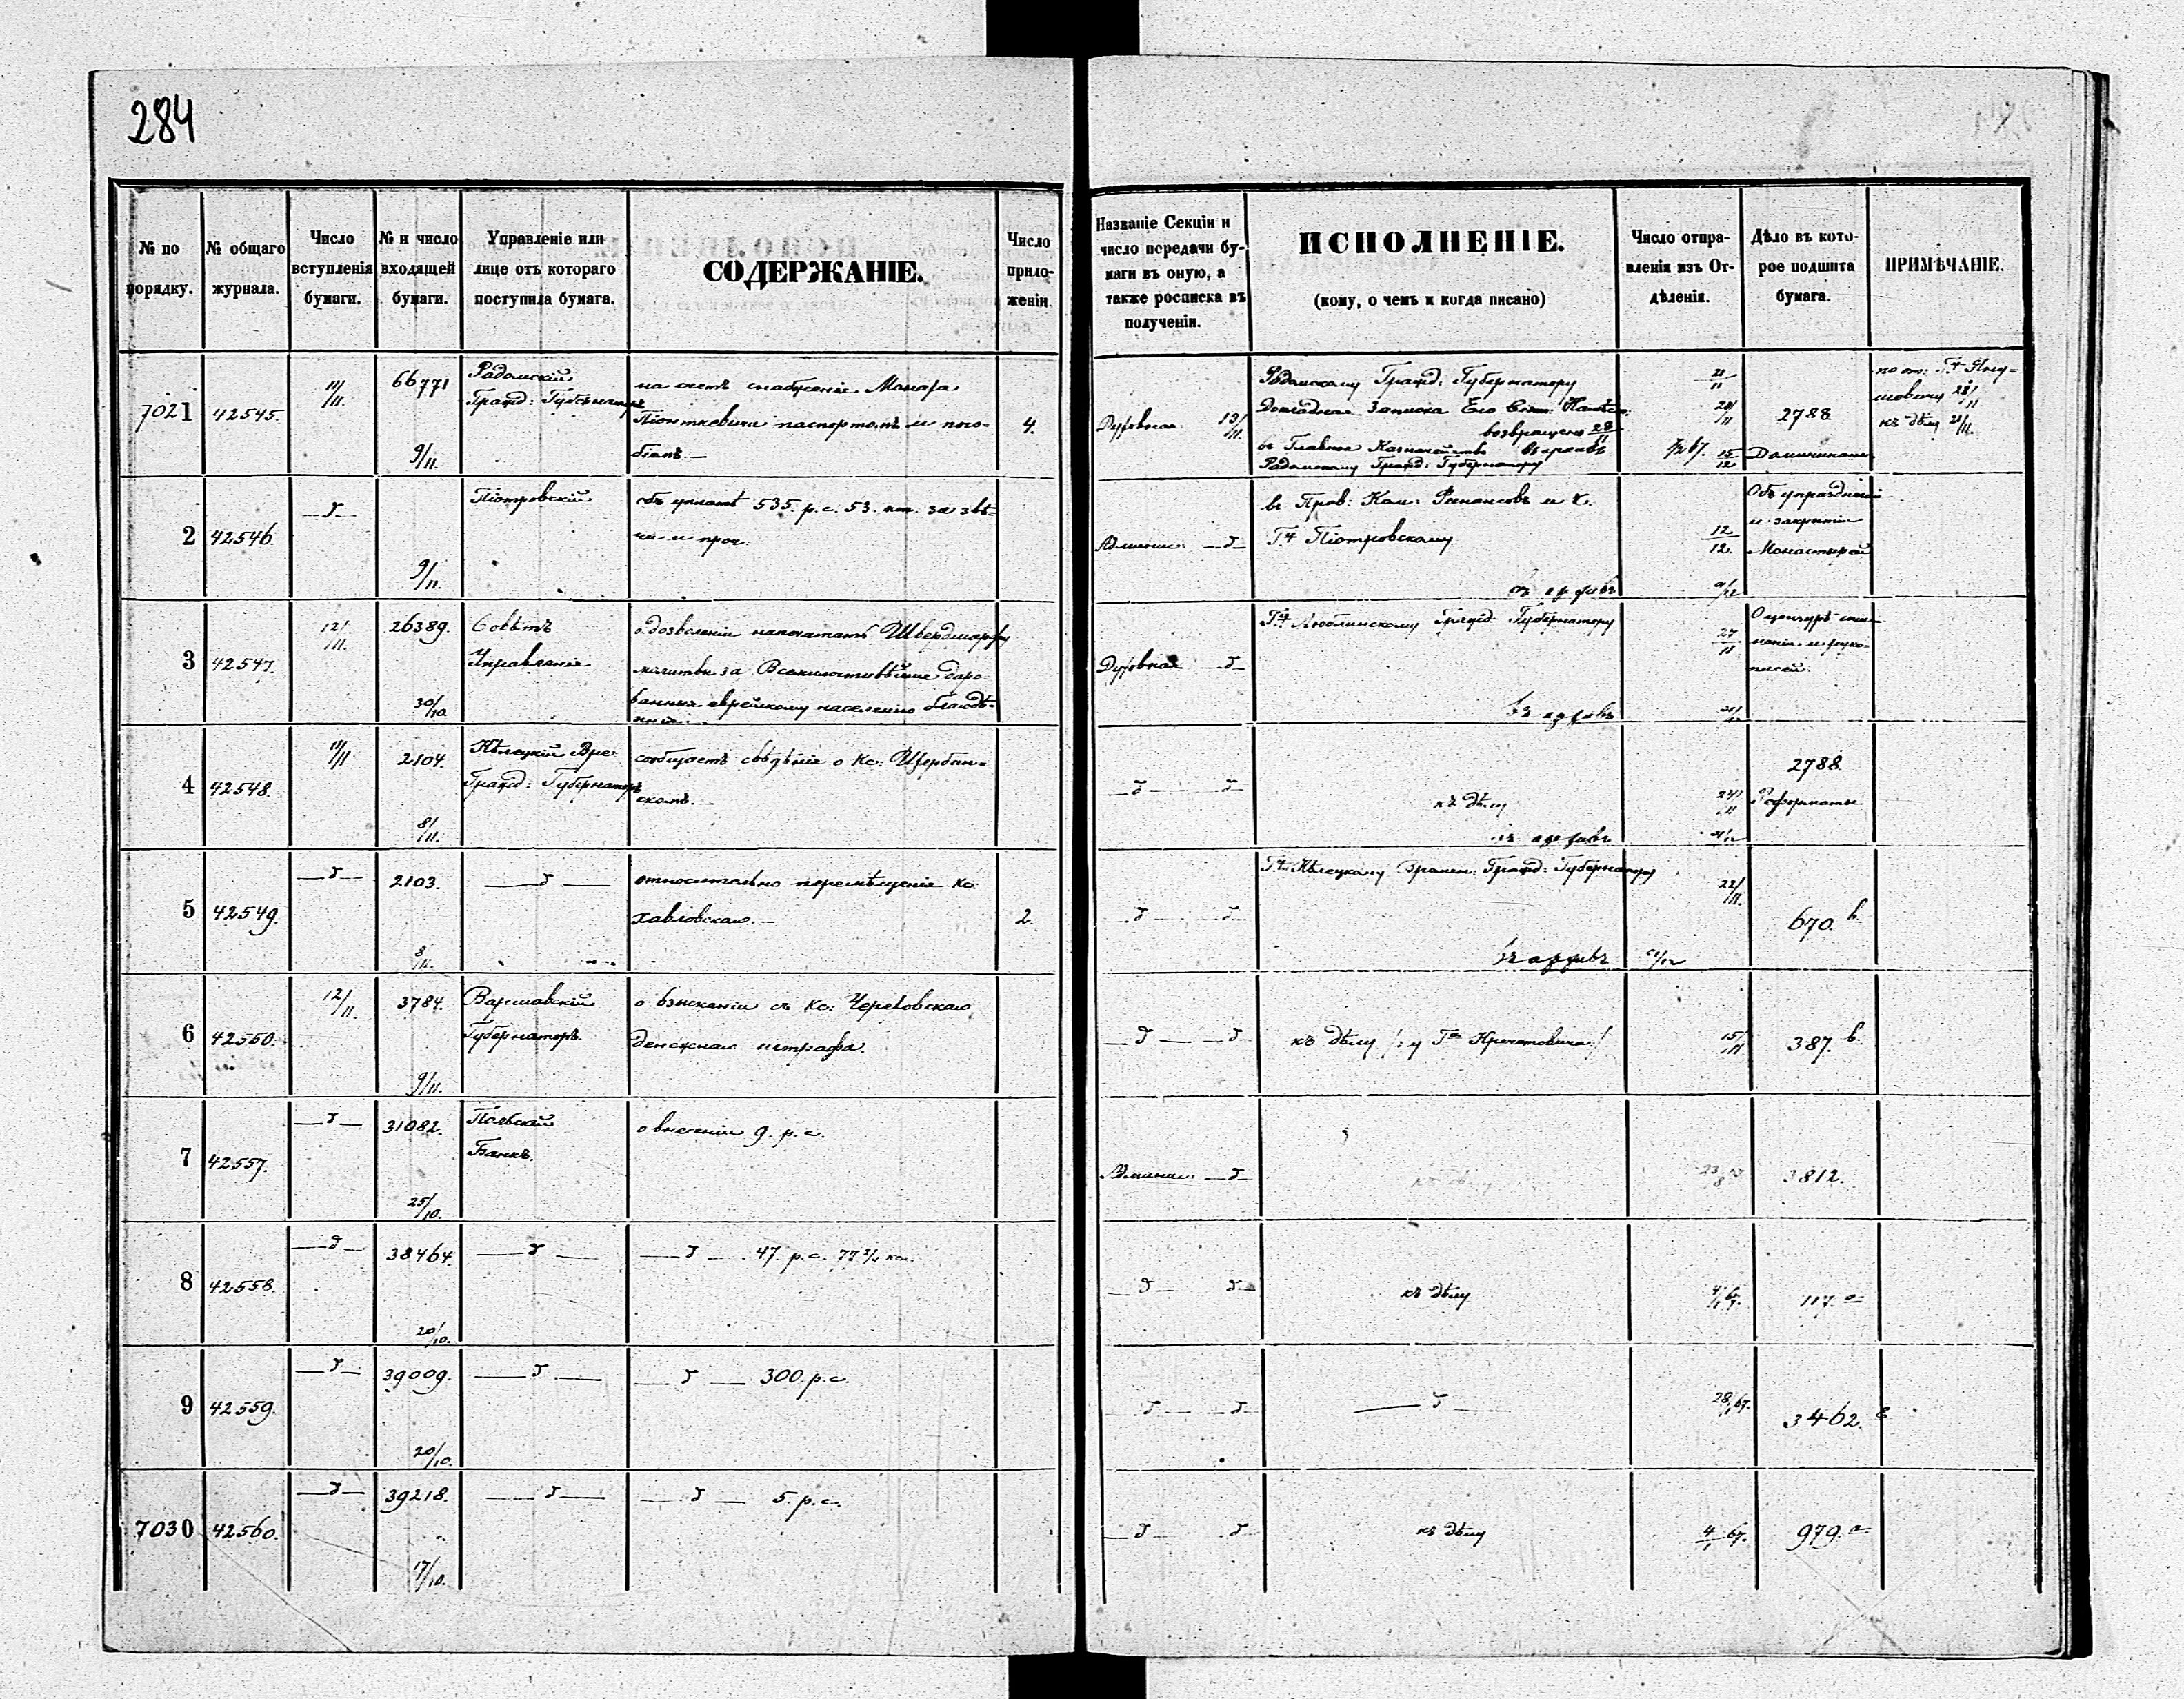 284
№ по порядку.
№ общаго журнала.
Число вступленія бумаги.
№ и число входящей бумаги.
Управленіе или лице отъ котораго поступила бумага.
СОДЕРЖАНІЕ.
Число приложеній.
Названіе Секціи и число передачи бумаги въ оную, а также росписка въ полученіи.
ИСПОЛНЕНІЕ.
(кому, о чемъ и когда писано)
Число отправленія изъ Отдѣленія.
Дѣло въ которое подшита бумага.
ПРИМѢЧАНІЕ.
7021 42545. 11/11. 66771 9/11.
Радомскій
Гражд: Губернаторъ
на счетъ снабженія Монаха
Піонткевича паспортомъ и посо-
біемъ.—
4.
Духовная 13/11.
Радомскому Гражд: Губернатору 21/11
Докладная Записка Его
возвращена 28/11
въ Главное Казначейство въ архивъ
Радомскому Гражд: Губернатору 15/12
2788
къ дѣлу 21/11.
2 42546. —д— 9/11.
Піотровскій
объ уплатѣ 535. р. с. 53. коп. за
и проч.
Админис. —д—
въ Прав: Ком: Финансовъ и К.
Гну Піотровскому 12/12.
въ архивъ
Объ упраздненіи
и закрытіи
Монастырей
3 42547. 12/11. 26389. 30/10.
Совѣтъ
Управленія
о дозволеніи напечатать Швердшарфу
молитвы за Всемилостивѣйше даро-
ванныя еврейскому населенію благодѣ-
Духовная —д
Гну Люблинскому Гражд: Губернатору 27/11
въ архивъ
О цензурѣ
и руко-
писей.
4 42548. 11/11 2104. 8/11.
Кѣлецкій Вре:
Гражд: Губернаторъ
сообщаетъ свѣдѣнія о Кс: Щербин-
скомъ.—
—д— д—
къ дѣлу 24/11
въ архивъ 21/12
2788
Реформаты
5 42549. —д— 2103. 8/11.
—д—
относительно перемѣщенія Кс:
Хавловскаго.—
2.
—д— д—
Гну Кѣлецкому Времен: Гражд: Губернатору 22/11.
въ архивъ 21/12
670. в.
6 42550. 12/11. 3784. 9/11.
Варшавскій
Губернаторъ.
о взысканіи съ Кс: Черевовскаго
денежнаго штрафа.
—д— д
къ дѣлу /: у Гна Кречетовича:/ 15/11
387. в.
7 42557. —д— 31082. 25/10.
Польскій
Банкъ.
о внесеніи 9. р. с.
Админис. —д
3812.
8 42558. —д— 38464. 20/10.
—д—
—д— 47. р. с. 77 1/2 коп.
—д— д—
къ дѣлу
117. а
9 42559. —д— 39009. 20/10.
—д—
—д— 300. р. с.
—д— д
—д— 28/1 67.
3462.
7030 42560. —д— 39218. 17/10.
—д—
—д— 5. р. с.
—д— д
къ дѣлу 4/1 67.
979. а